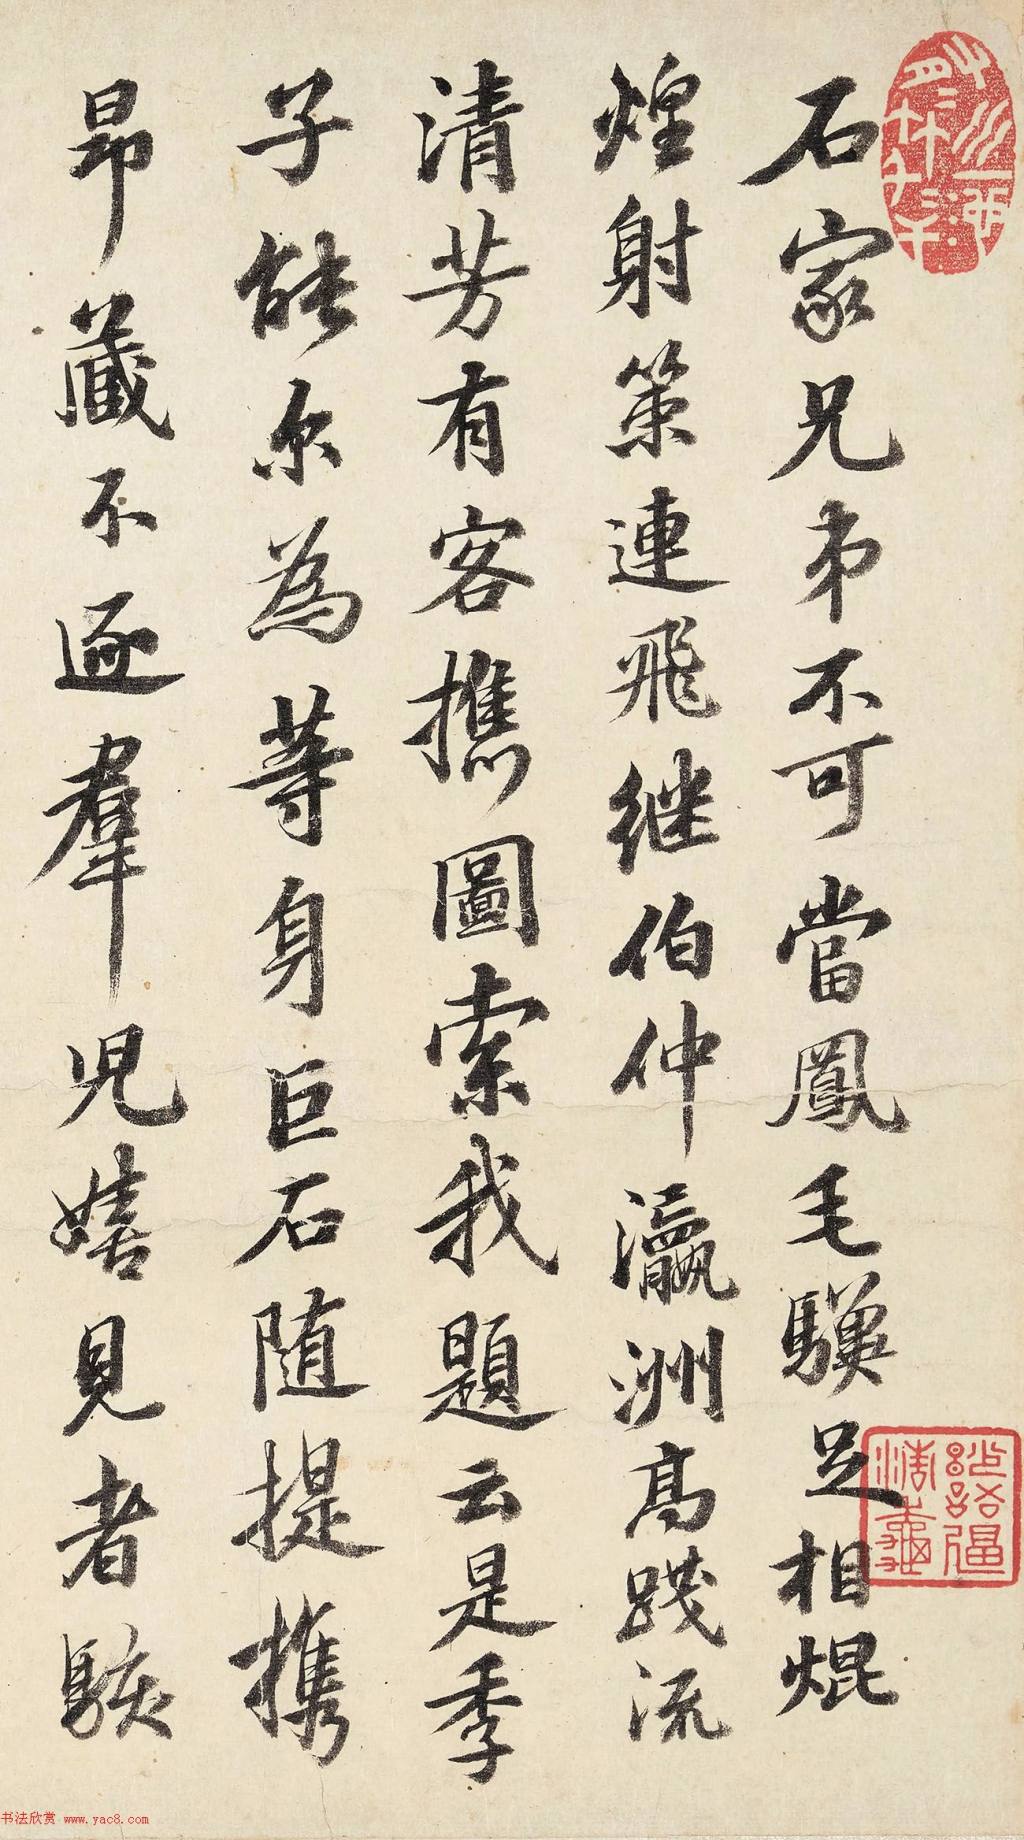 石家兄弟不可當鳳毛驥足相焜
煌射策連飛継伯仲瀛洲高踐流
清芳有客攜圖索我題云是季
子能尔為等身巨石随提攜
昂藏不逐羣児嬉見者駭
书法欣赏 www.yac8.com